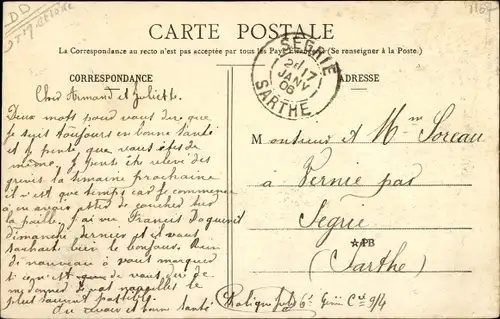 CARTE POSTALE
La Correspondance au recto n'est pas acceptée par tous les Pays Étrangers (Se renseigner à la Poste.)
CORRESPONDANCE
ADRESSE
SEGRIE
2e 17
JANV
06
SARTHE
Cher Armand et Juliette.
Deux mots pour vous dire que
je suis toujours en bonne santé
et je pense que vous êtes de
même. Je pense être relevé des
la semaine prochaine
il n'est que temps car je commence
à en avoir assez de coucher sur
la paille, j'ai vu Francis
dimanche dernier et il vous
souhaite bien le bonjour. Rien
de nouveau à vous marquer
si ce n'est que de vous dire de
me donner de vos nouvelles le
plus souvent possible.
Au revoir et bonne santé
Monsieur et Mme Soreau
à Vernie par
Segrie
PB
(Sarthe)